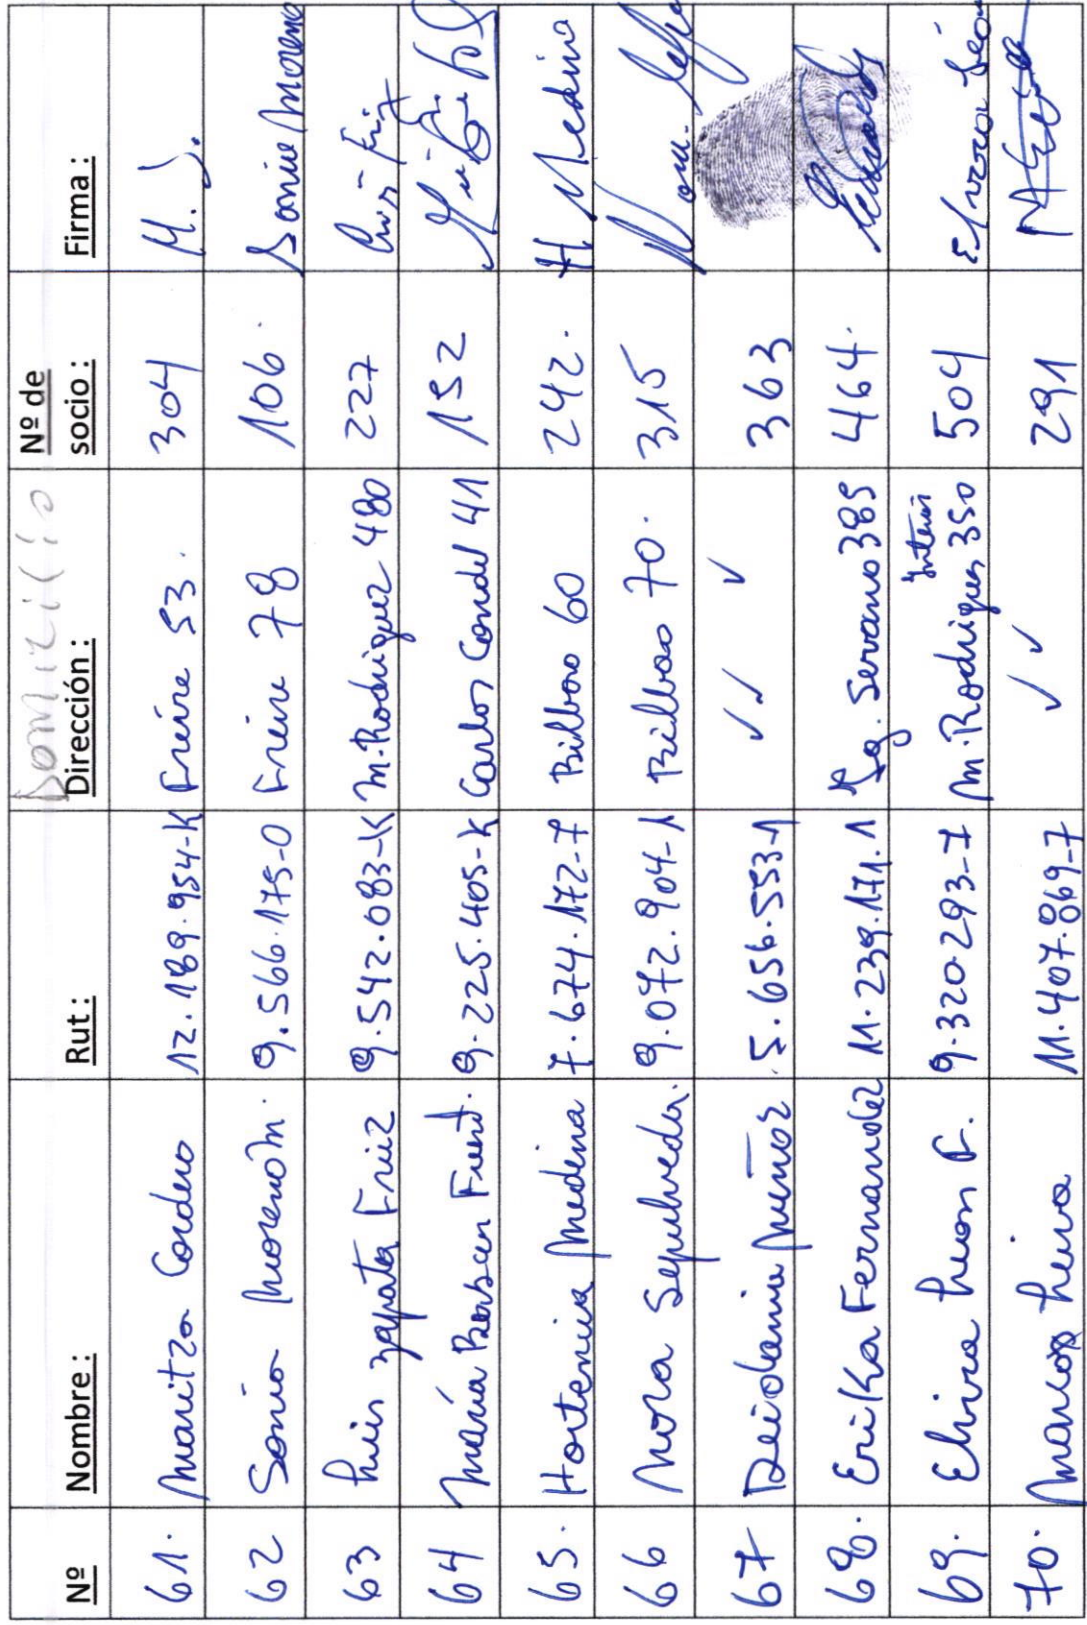 Domicilio
Nº Nombre : Rut : Dirección : Nº de socio : Firma :
61. Maritza Cordero 12.189.954-K Freire 53. 304 M. J.
62 Sonia Moreno M. 9.566.175-0 Freire 78 106. Sonia Moreno
63 Luis Zapata Friz 9.542.083-K M. Rodriguez 480 227 Luis Friz
64 María Bassan Fuent. 9.225.405-K Carlos Condel 41 152
65. Hortensia Medina 7.674.172-7 Bilbao 60 242. H Medina
66 Nora Sepulveda. 9.072.904-1 Bilbao 70. 315
67 Deidamia Muñoz 5.656.553-1 ✓ ✓ ✓ 363
68. Erika Fernandez 11.239.171.1 Ig. Serrano 385 464.
69. Elvira Leon F. 9.320.293-7 M. Rodrigues 350 Interior 504 Elvira León
70. Marcos Leiva 11.407.869-7 ✓ ✓ 291